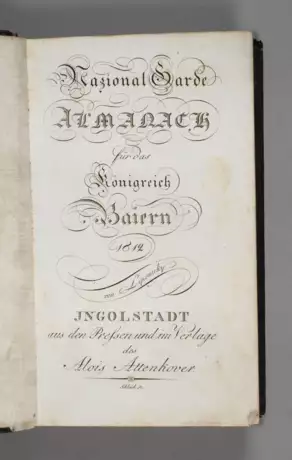 Nazional Garde
ALMANACH
für das
Königreich
Baiern
1812
von Lipowsky
JNGOLSTADT
aus den Pressen und im Verlage
des
Alois Attenkover